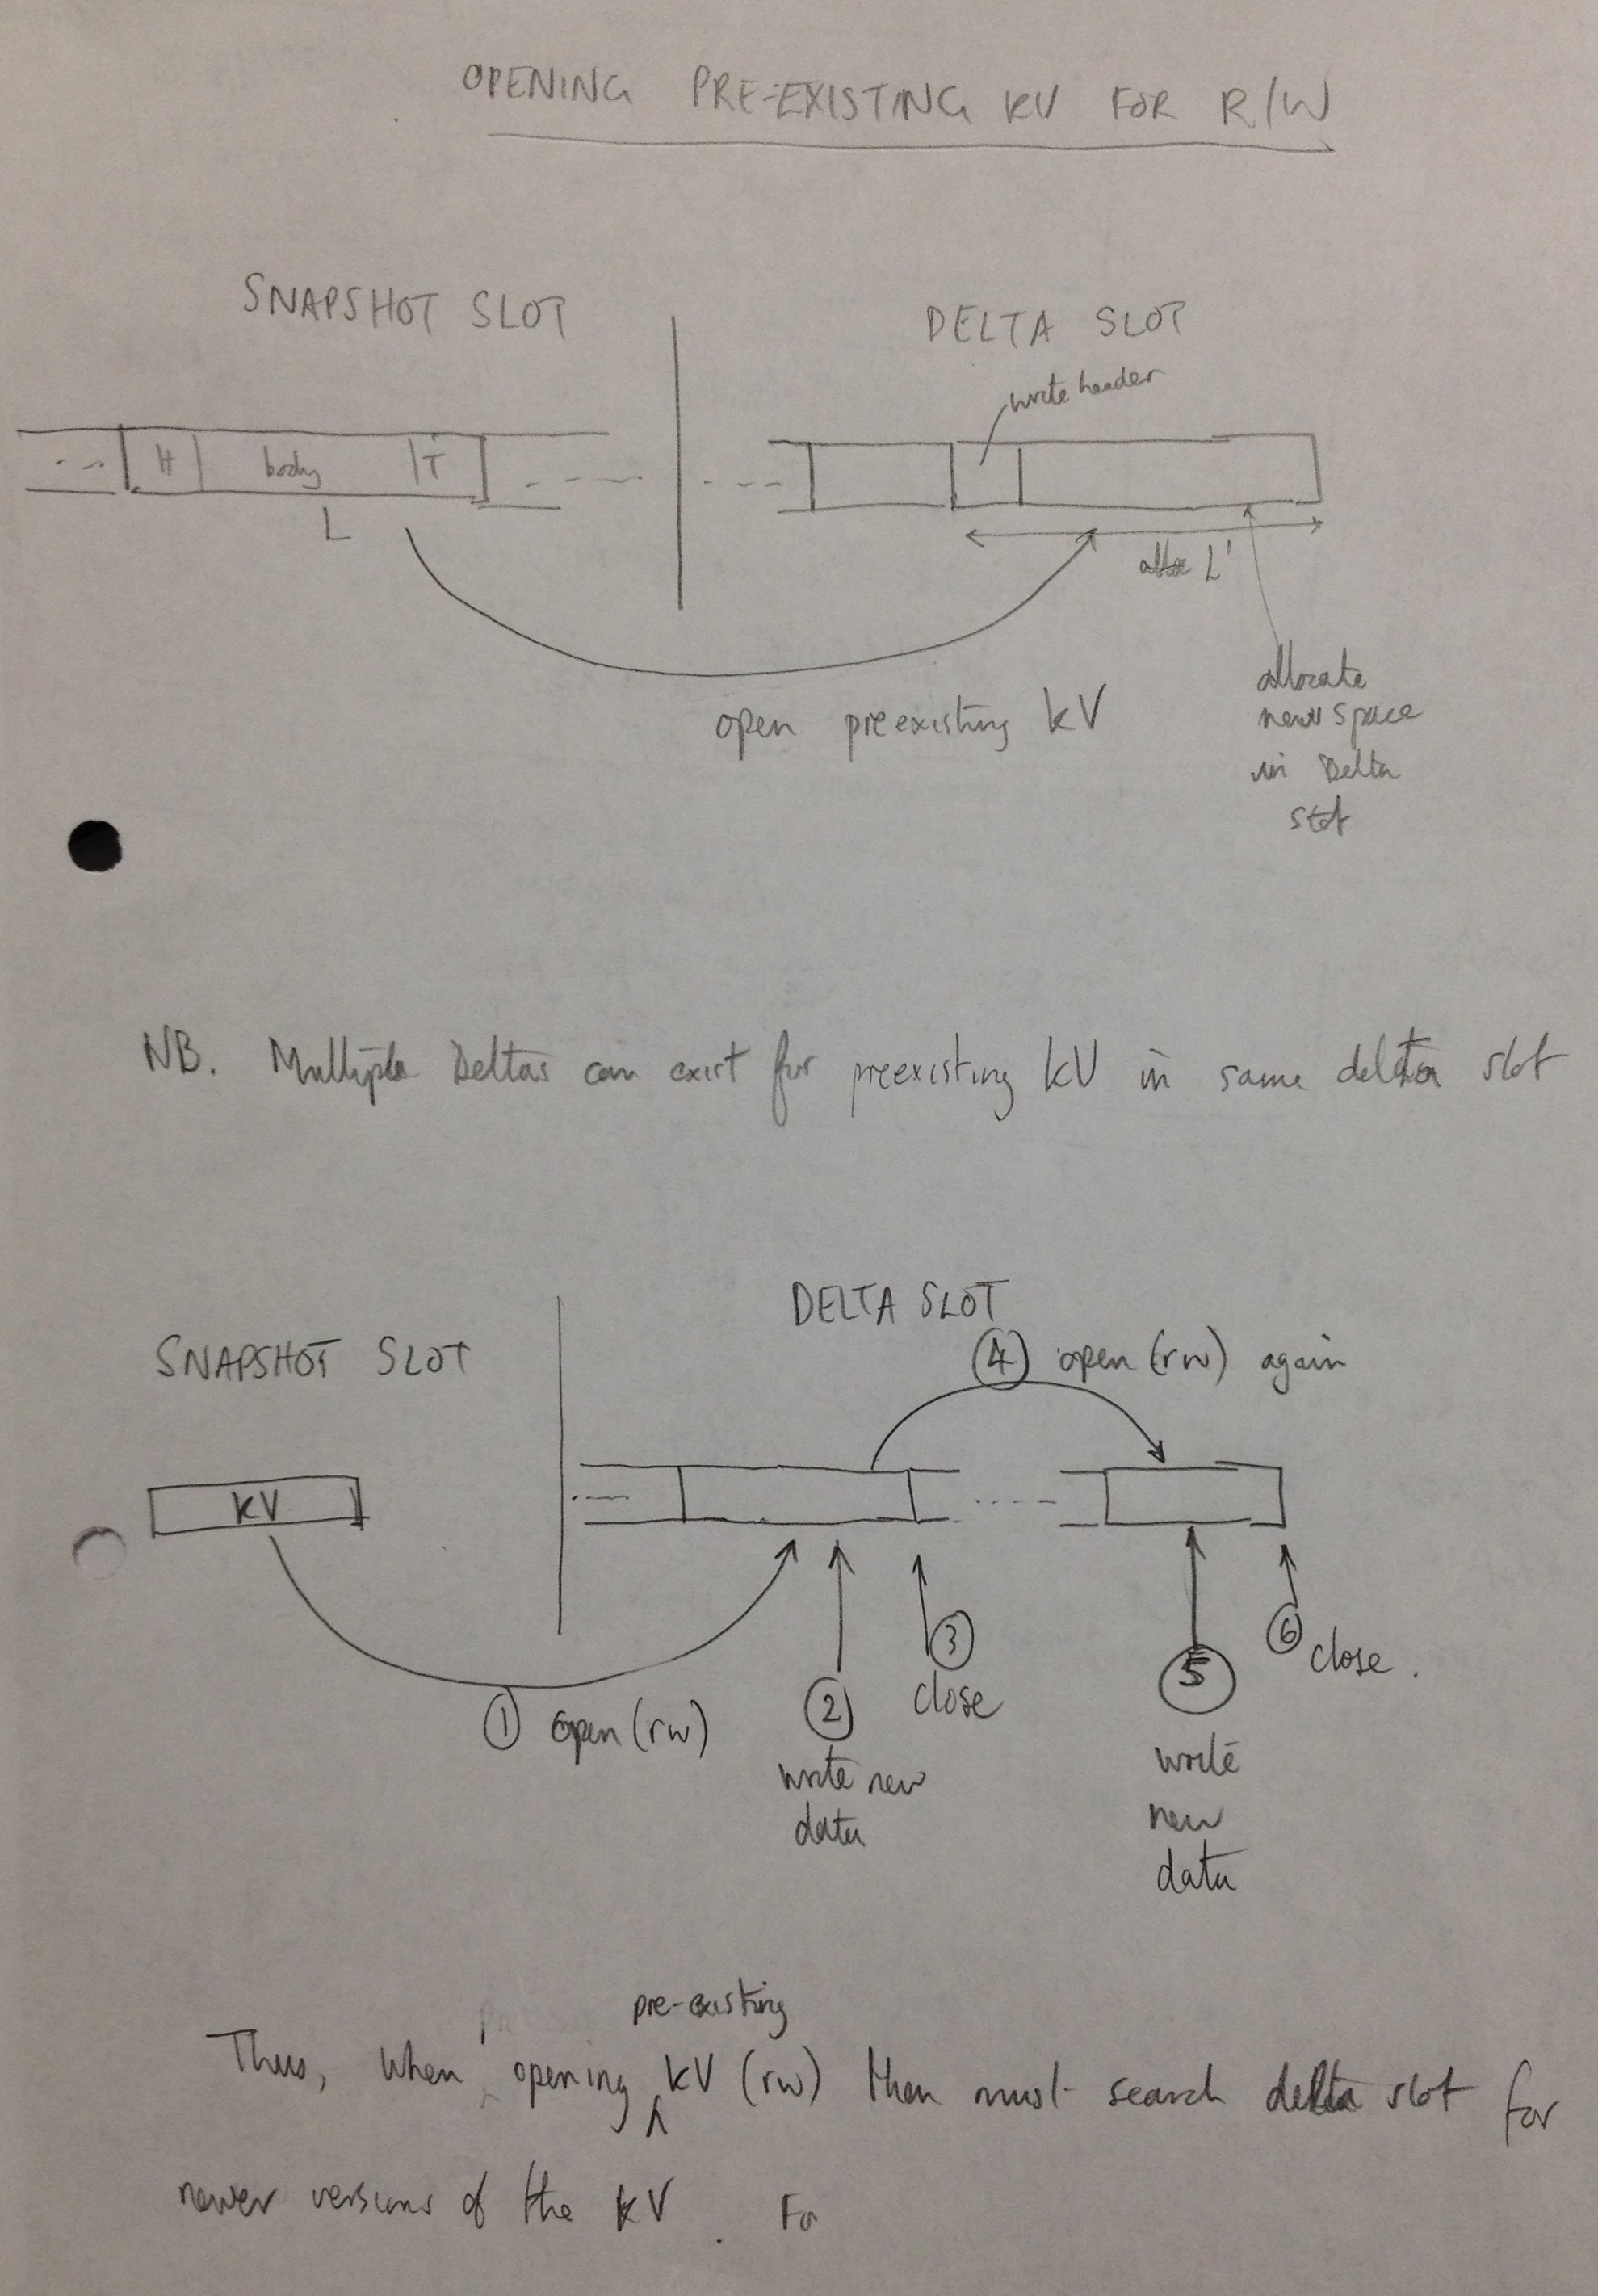 OPENING PRE-EXISTING KV FOR R/W
SNAPSHOT SLOT
DELTA SLOT
write header
H
body
T
L
L'
open preexisting kV
allocate
new space
in Delta
slot
NB. Multiple Deltas can exist for preexisting kV in same delta slot
SNAPSHOT SLOT
DELTA SLOT
kV
① open (rw)
② write new
data
③ close
④ open (rw) again
⑤ write
new
data
⑥ close.
pre-existing
Thus, when opening kV (rw) then must search delta slot for
newer versions of the kV. For